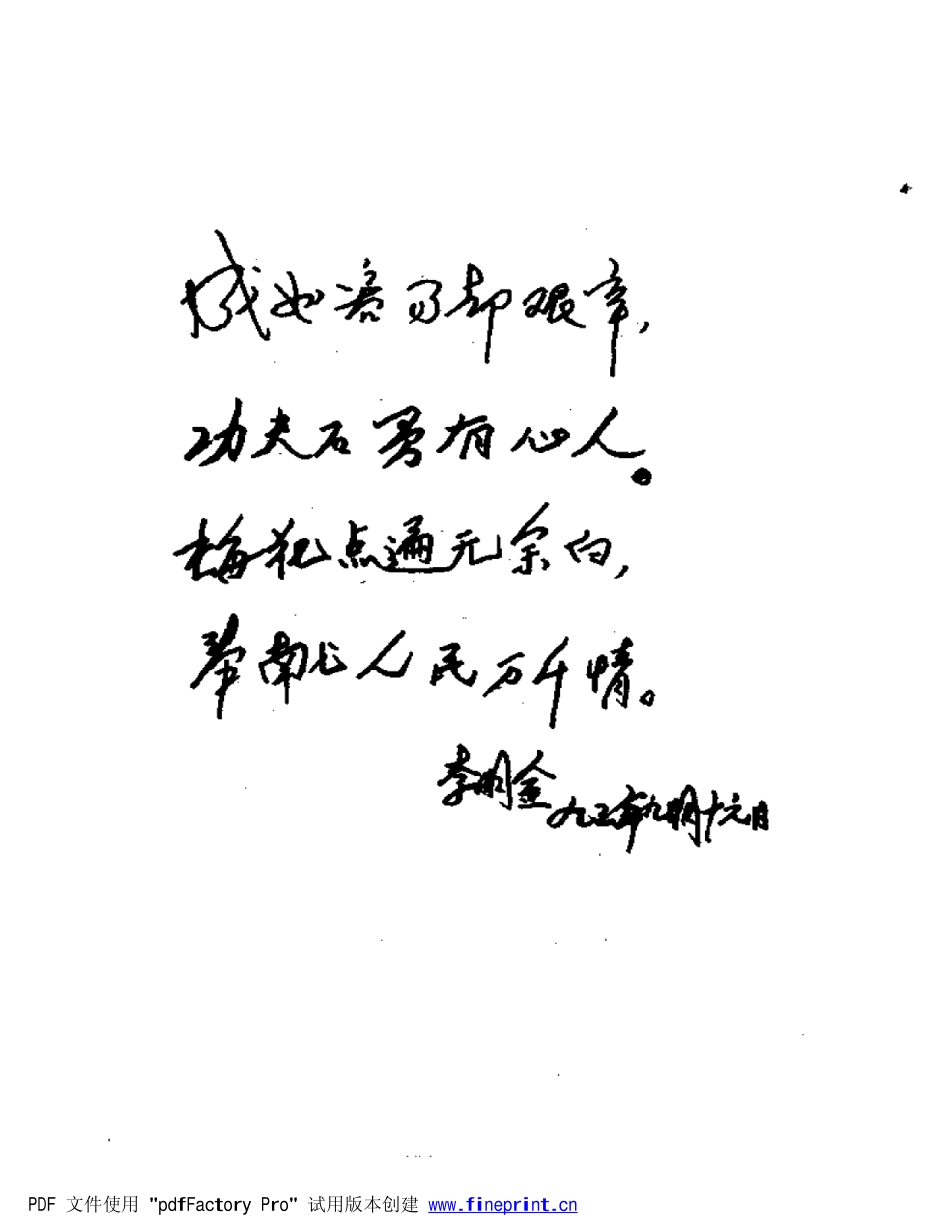 成如容易却艰辛,
功夫不负有心人。
梅花点遍无余白,
奉献人民万千情。
李明金 九五年九月十六日
PDF 文件使用 "pdfFactory Pro" 试用版本创建 www.fineprint.cn